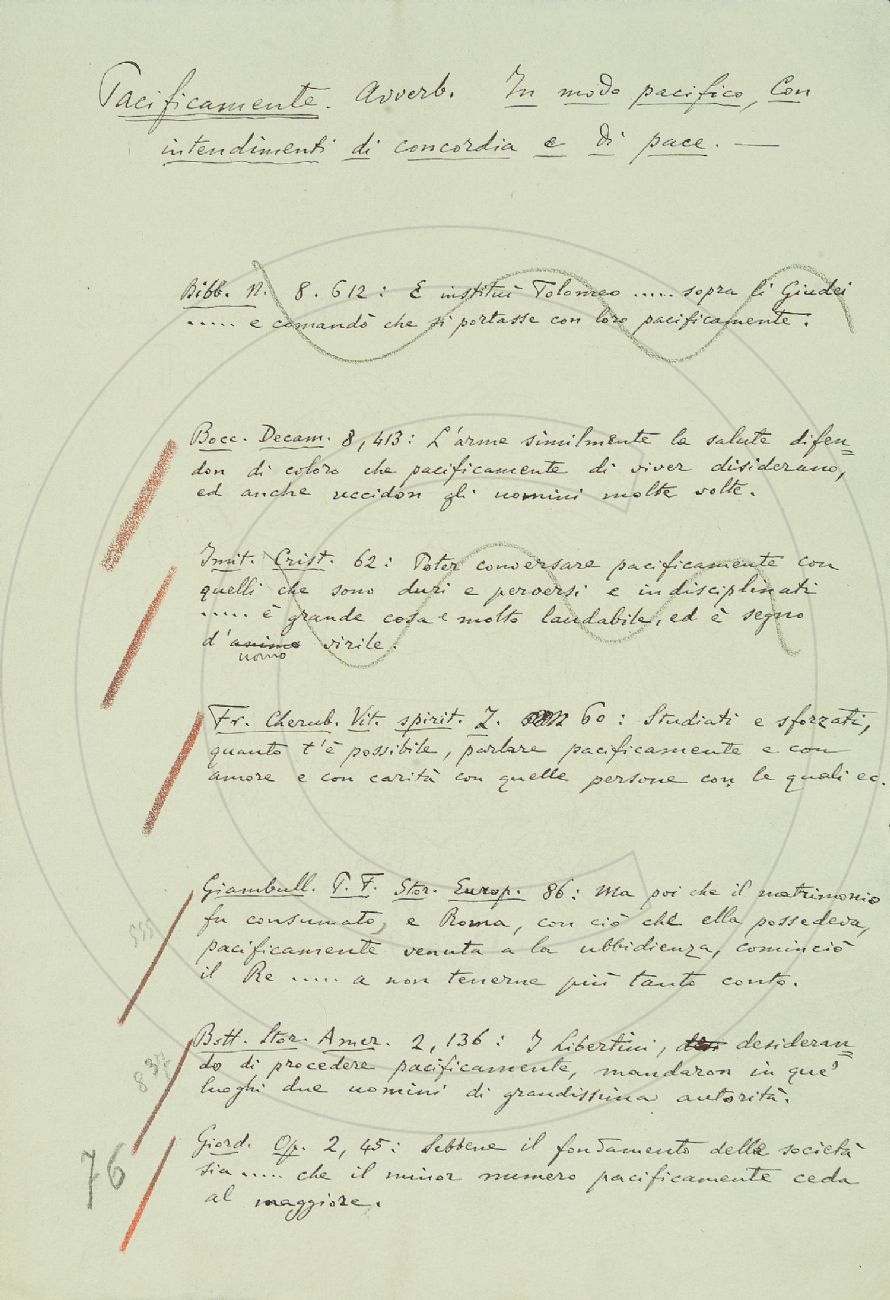 Pacificamente. Avverb. In modo pacifico, Con
intendimenti di concordia e di pace. —
Bibb. N. 8. 612: E instituì Tolomeo ..... sopra li Giudei
..... e comandò che si portasse con loro pacificamente.
Bocc. Decam. 8, 413: L'arme similmente la salute difen=
don di coloro che pacificamente di viver disiderano,
ed anche uccidon gli uomini molte volte.
Imit. Crist. 62: Poter conversare pacificamente con
quelli che sono duri e perversi e indisciplinati
..... è grande cosa e molto laudabile, ed è segno
d'animo virile.
uomo
Fr. Cherub. Vit. spirit. Z. 60: Studiati e sforzati,
quanto t'è possibile, parlare pacificamente e con
amore e con carità con quelle persone con le quali ec.
Giambull. P. F. Stor. Europ. 86: Ma poi che il matrimonio
fu consumato, e Roma, con ciò che ella possedeva,
555
pacificamente venuta a la ubbidienza, cominciò
il Re ..... a non tenerne più tanto conto.
Bott. Stor. Amer. 2, 136: I Libertini, desideran=
do di procedere pacificamente, mandaron in que'
837
luoghi due uomini di grandissima autorità.
Giord. Op. 2, 45: Sebbene il fondamento delle società
76
sia ..... che il minor numero pacificamente ceda
al maggiore.